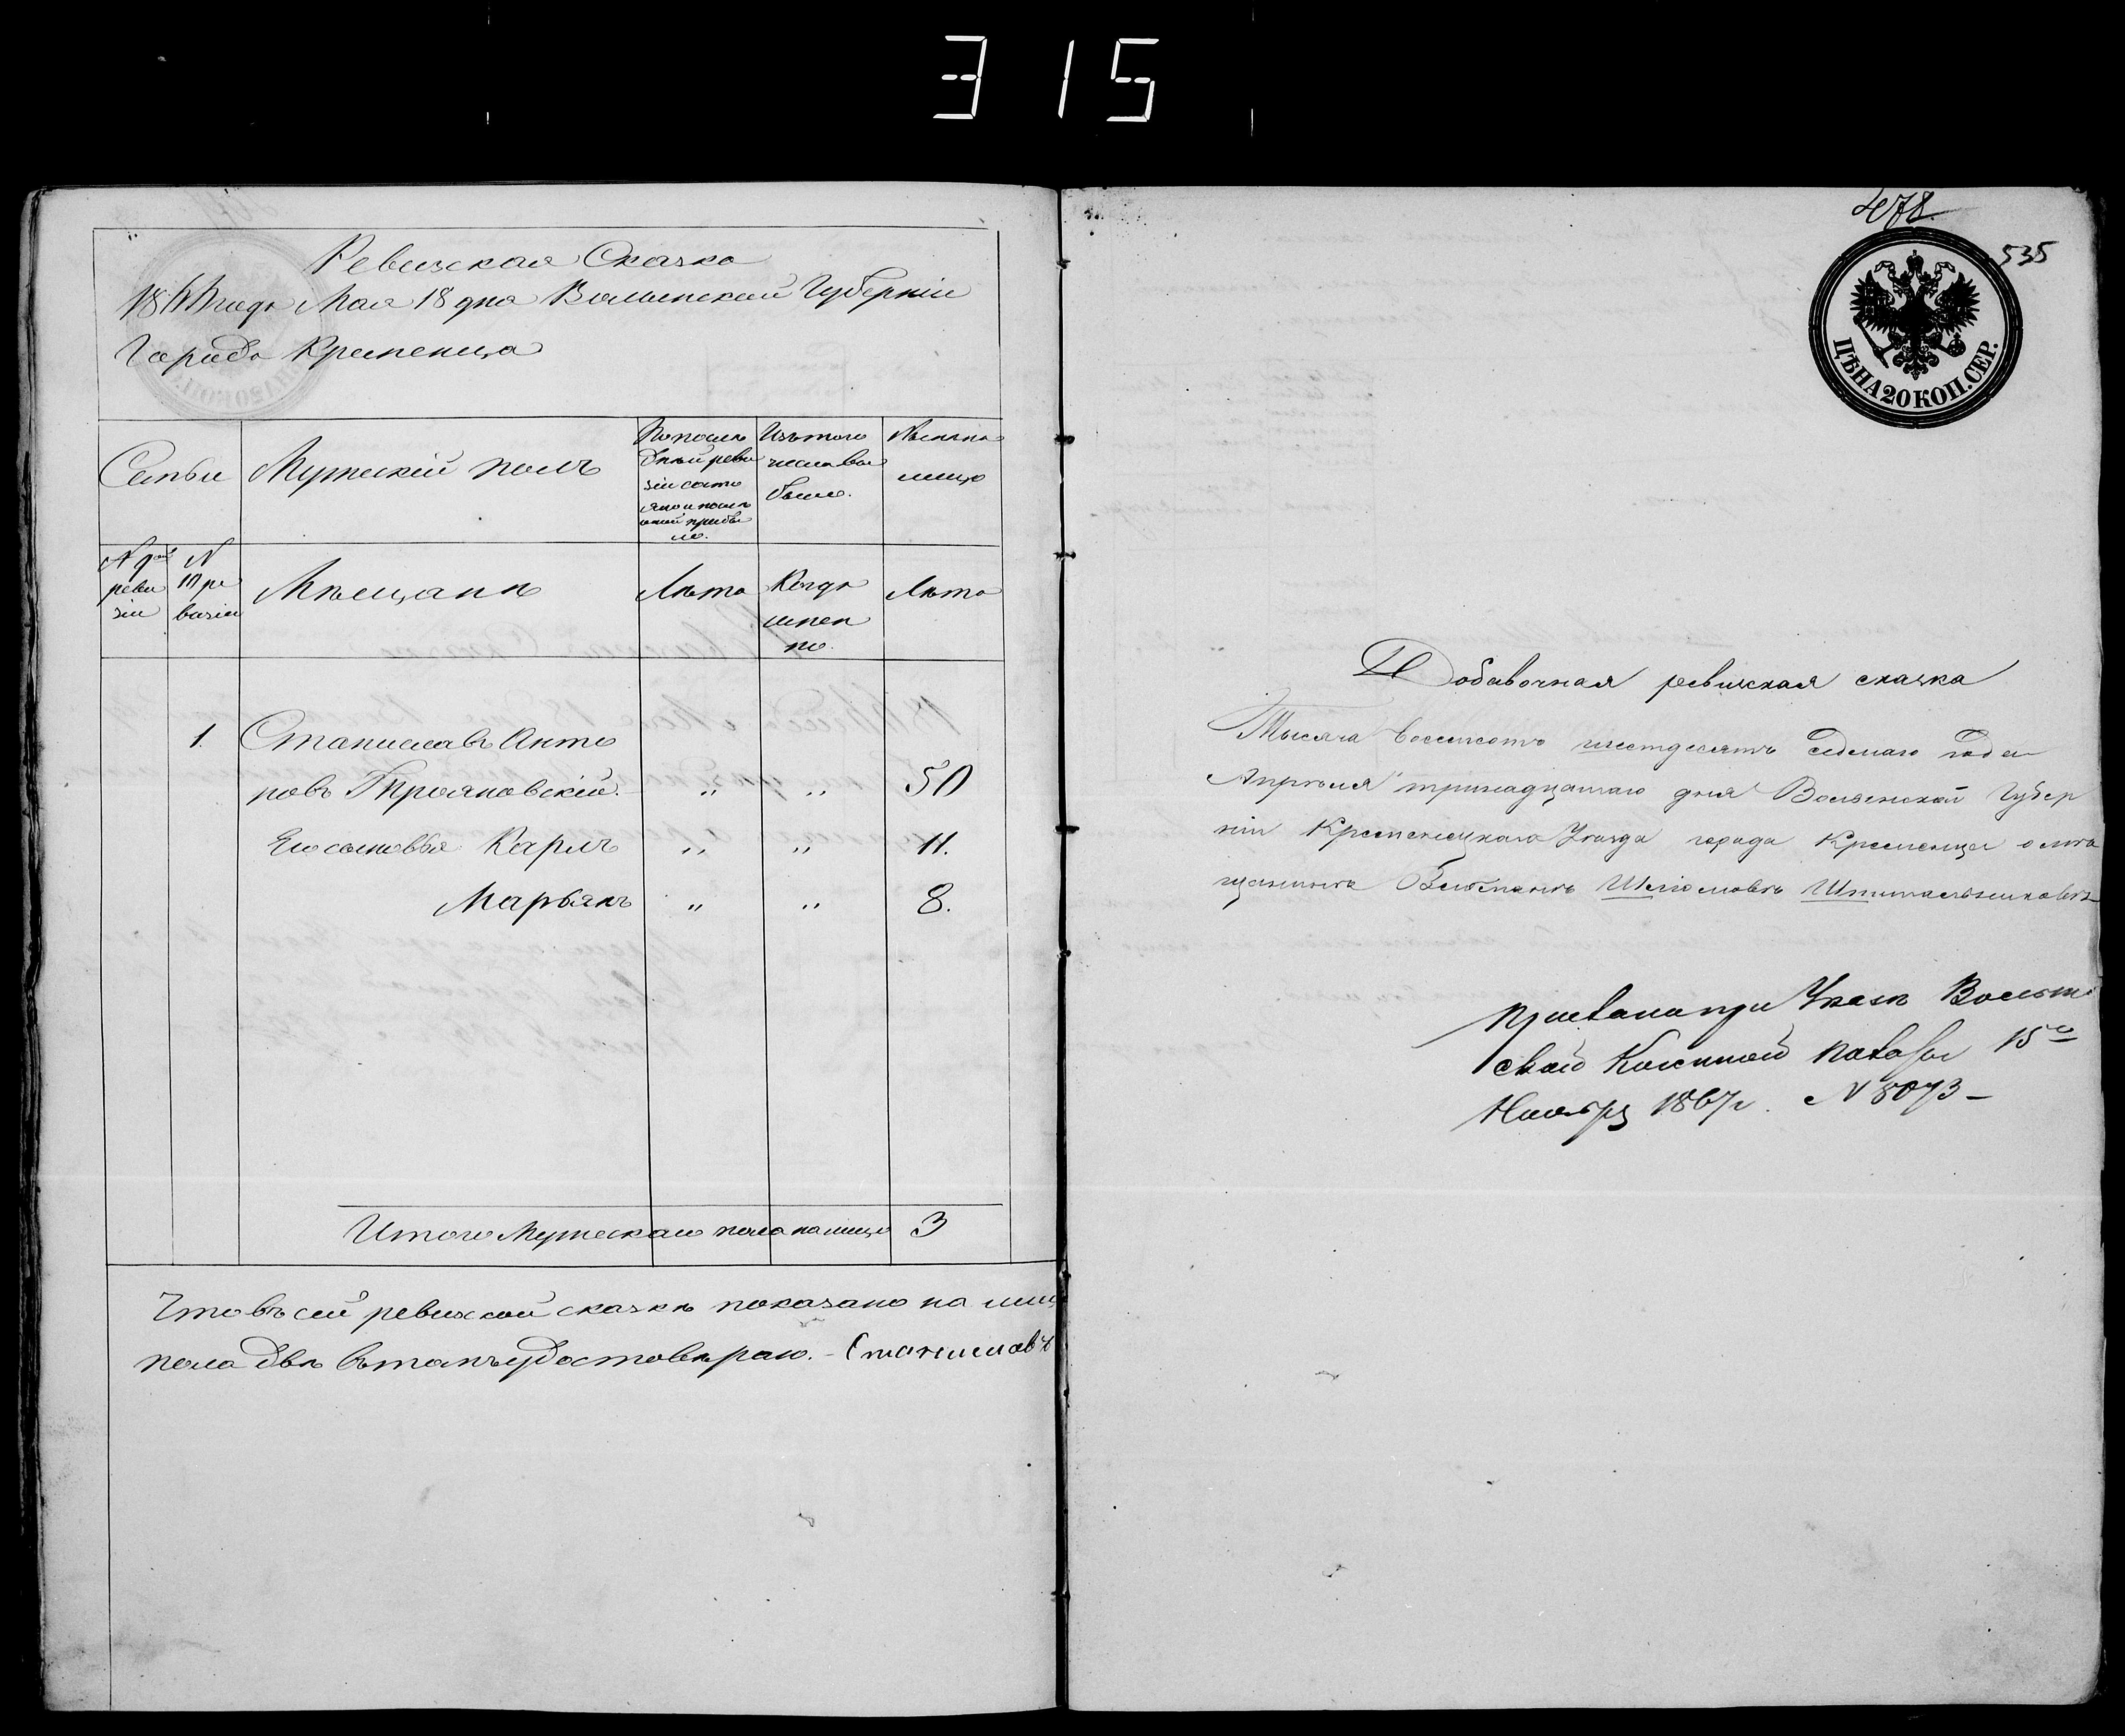 315
Ревизская Сказка
года Мая 18 дня Волынской Губерніи
Города Кременца
Семьи
Мужескій полъ
По послѣ
дней реви
зіи состо
яло и послѣ
оной прибы
ло.
Изъ того
числа вы
было.
Нынѣ на
лицо
N 9ой
реви
зіи
N
10 ре
визіи
Мѣщанѣ
Лѣта
Когда
имен
но.
Лѣта
1. Станиславъ Анто
новъ Трояновскій. „ „ 50
Его сыновья Карлъ „ „ 11.
Марьянъ „ „ 8.
Итого Мужескаго пола на лицо 3
Что въ сей ревизской сказкѣ показано на лиц
пола въ томъ удостовѣряю. - Станиславъ
478
535
ЦѢНА 20 КОП. СЕР.
Добавочная ревизская сказка
Тысяча восемсотъ шестдесятъ седмаго года
Апрѣля тринадцатаго дня Волынской Губер
ніи Кременецкаго Уѣзда города Кременца о мѣ
щанинѣ Шліомовѣ Шпитальниковѣ
при Указѣ Волын
ской Казенной Палаты 15го
Ноября 1867 г. N 8073 -